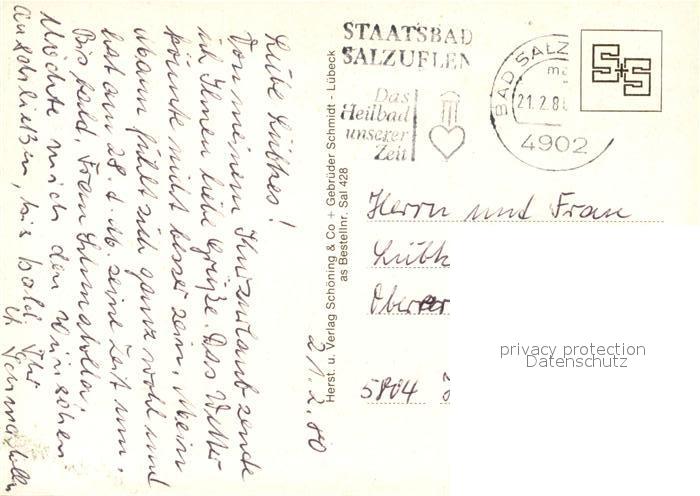 STAATSBAD
SALZUFLEN
Das
Heilbad
unserer
Zeit
BAD SALZ
21.2.8
4902
Herst. u. Verlag Schöning & Co + Gebrüder Schmidt - Lübeck
as Bestellnr. Sal 428
Liebe Lübkes!
Von meinem Kurzurlaub sende
ich Ihnen liebe Grüße. Das Wetter
könnte nicht besser sein. Mein
Mann fühlt sich ganz wohl und
hat am 28. d. M. seine Zeit um.
Bis bald, Frau
Möchte mich den Wünschen
anschließen, bis bald Ihr
21.2.80
Herrn und Frau
Lübk
Ober
5804
privacy protection
Datenschutz